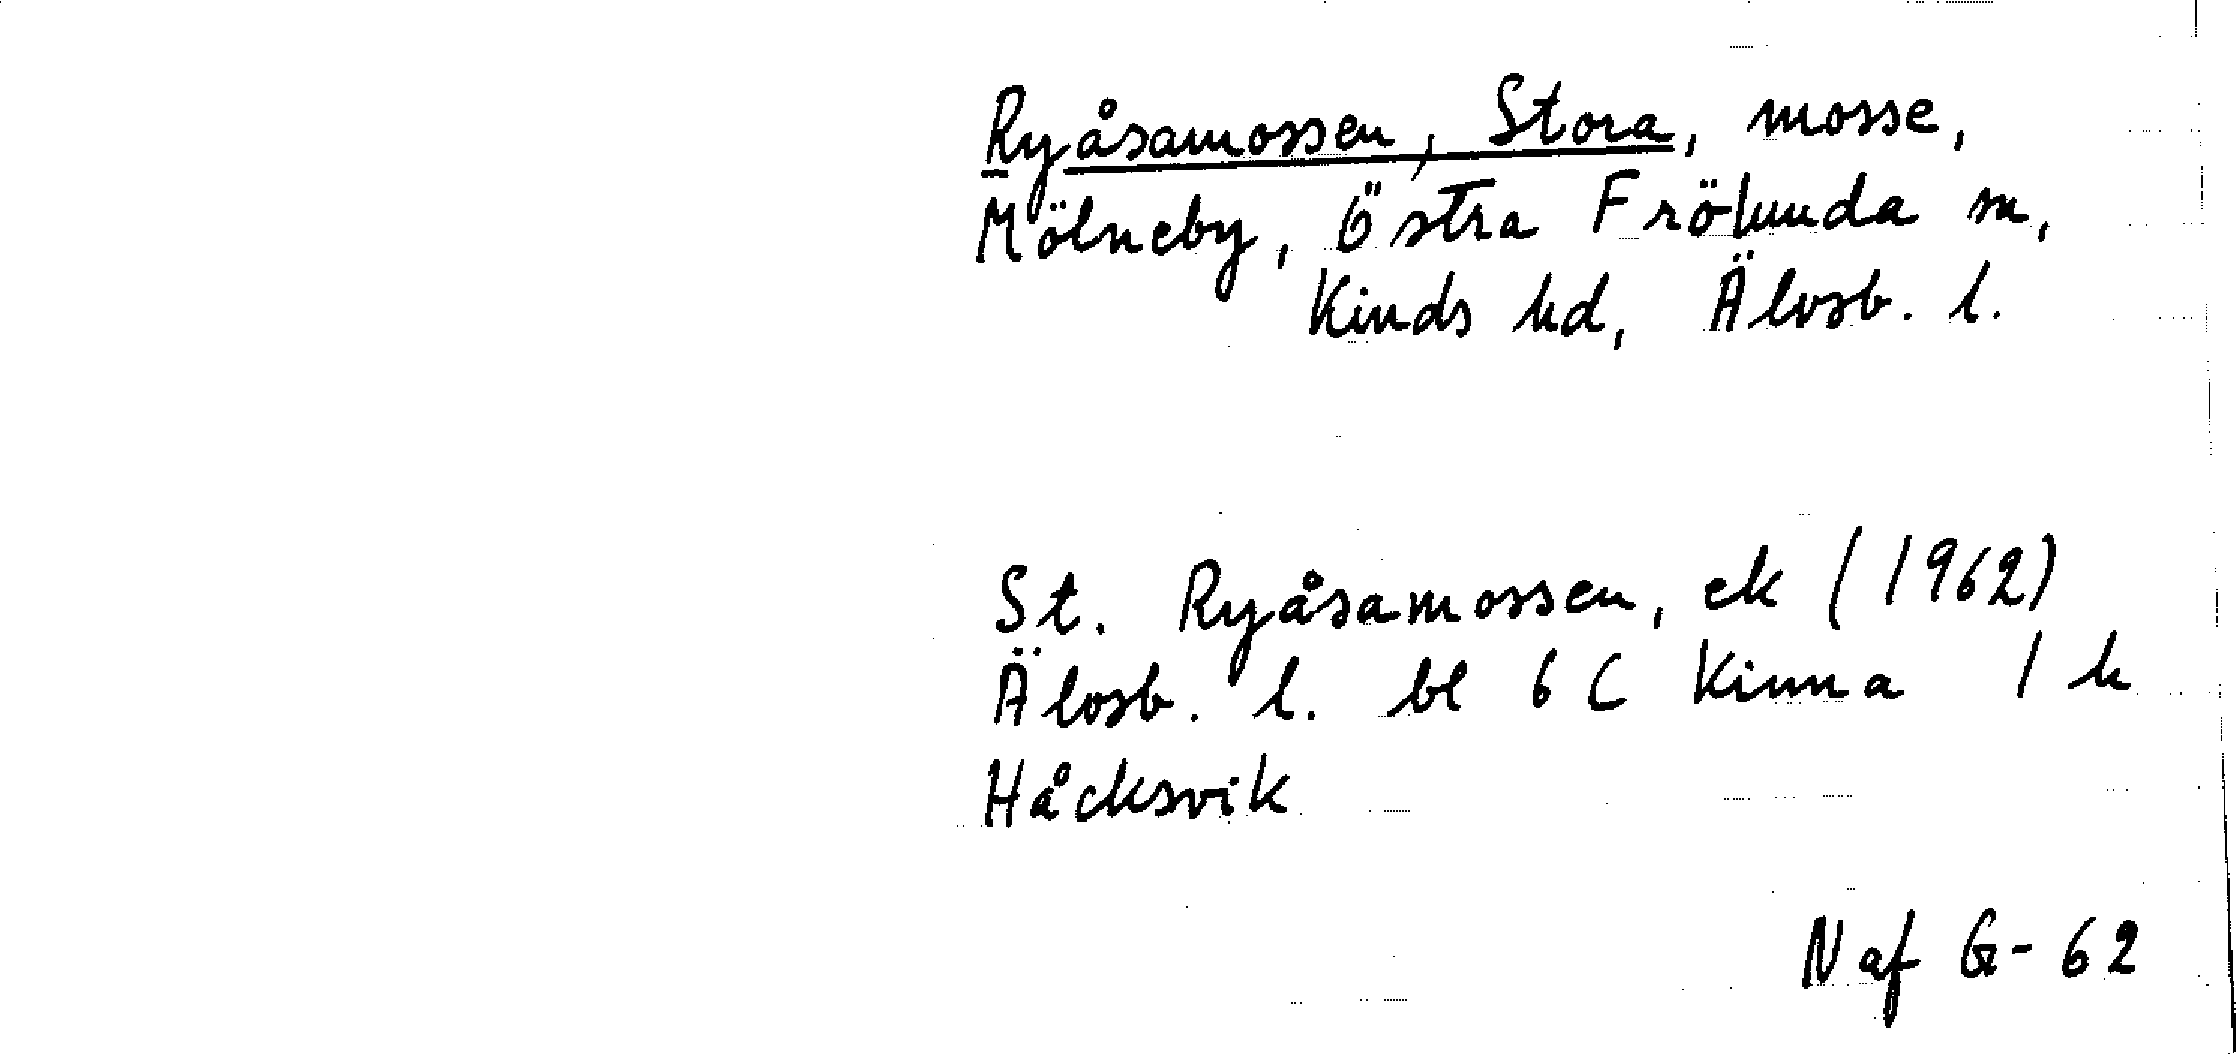 Ryåsamossen, Stora, mosse,
Mölneby, Östra Frölunda sn,
Kinds hd, Älvsb. l.
St. Ryåsamossen, ek (1962)
Älvsb. l. bl 6 C Kinna 1 h
Håcksvik
Naf G-62